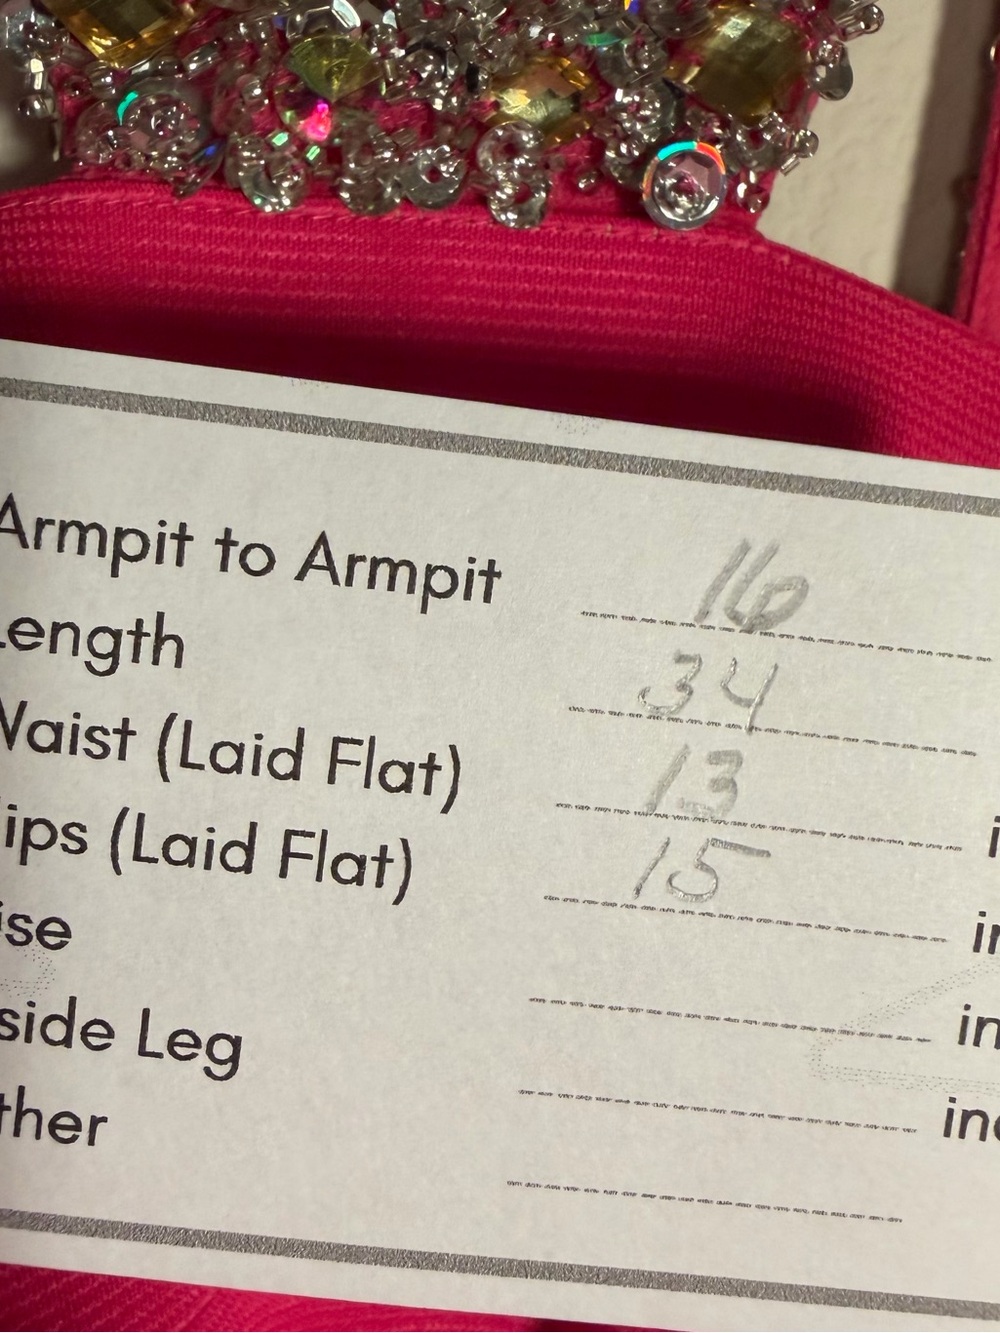 Armpit to Armpit 16
Length 34
Waist (Laid Flat) 13 i
ips (Laid Flat) 15 in
ise in
side Leg inc
ther